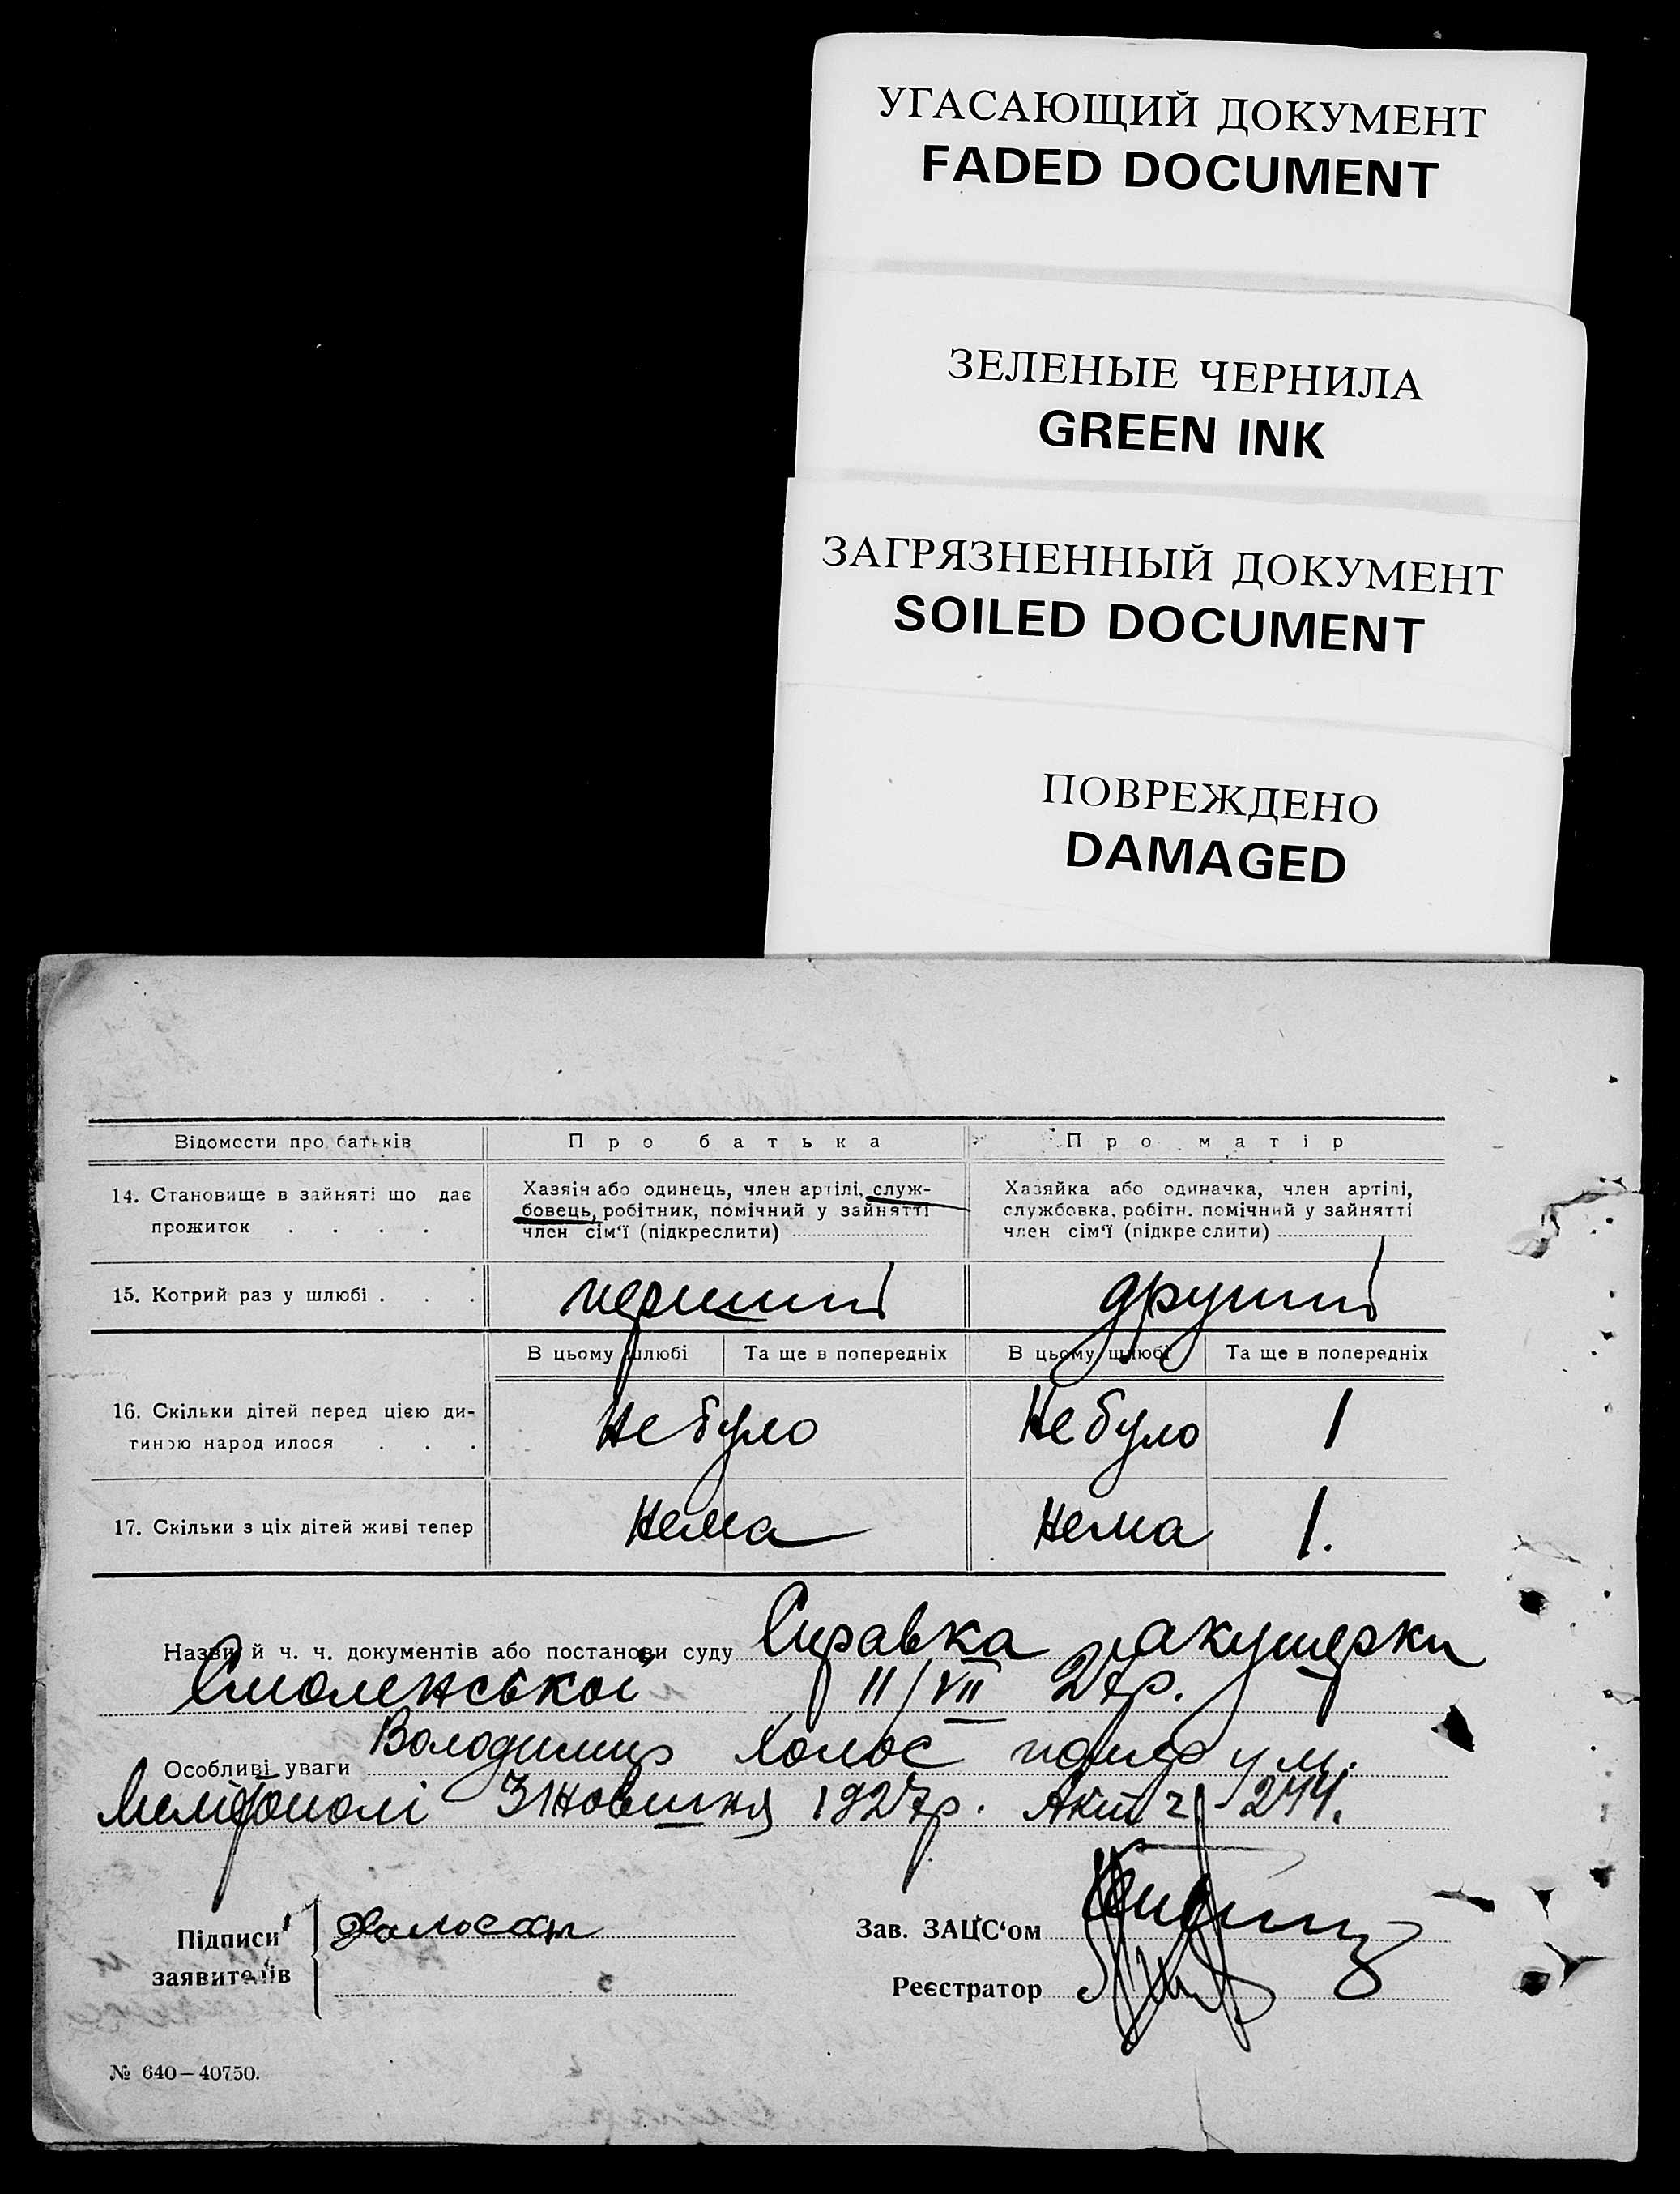 УГАСАЮЩИЙ ДОКУМЕНТ
FADED DOCUMENT
ЗЕЛЕНЫЕ ЧЕРНИЛА
GREEN INK
ЗАГРЯЗНЕННЫЙ ДОКУМЕНТ
SOILED DOCUMENT
ПОВРЕЖДЕНО
DAMAGED
Відомости про батьків Про батька Про матір
14. Становище в зайняті що дає прожиток . . . .
Хазяін або одинець, член артілі, служ-
бовець, робітник, помічний у зайнятті
член сім‘ї (підкреслити)
Хазяйка або одиначка, член артілі,
службовка, робітн. помічний у зайнятті
член сім‘ї (підкреслити)
15. Котрий раз у шлюбі . . . перший другий
В цьому шлюбі Та ще в попередніх В цьому шлюбі Та ще в попередніх
16. Скільки дітей перед цією ди-
тиною народилося . . . Не було Не було 1
17. Скільки з ціх дітей живі тепер Нема Нема 1.
Назви й ч. ч. документів або постанови суду Справка акушерки
Смоленської 11/VII 27р.
Особливі уваги Володимир Холос помер у м.
Мелітополі 31 Новишня 1927р. Акт ч 244.
Підписи
заявителів
Зав. ЗАЦС‘ом
Реєстратор
№ 640—40750.